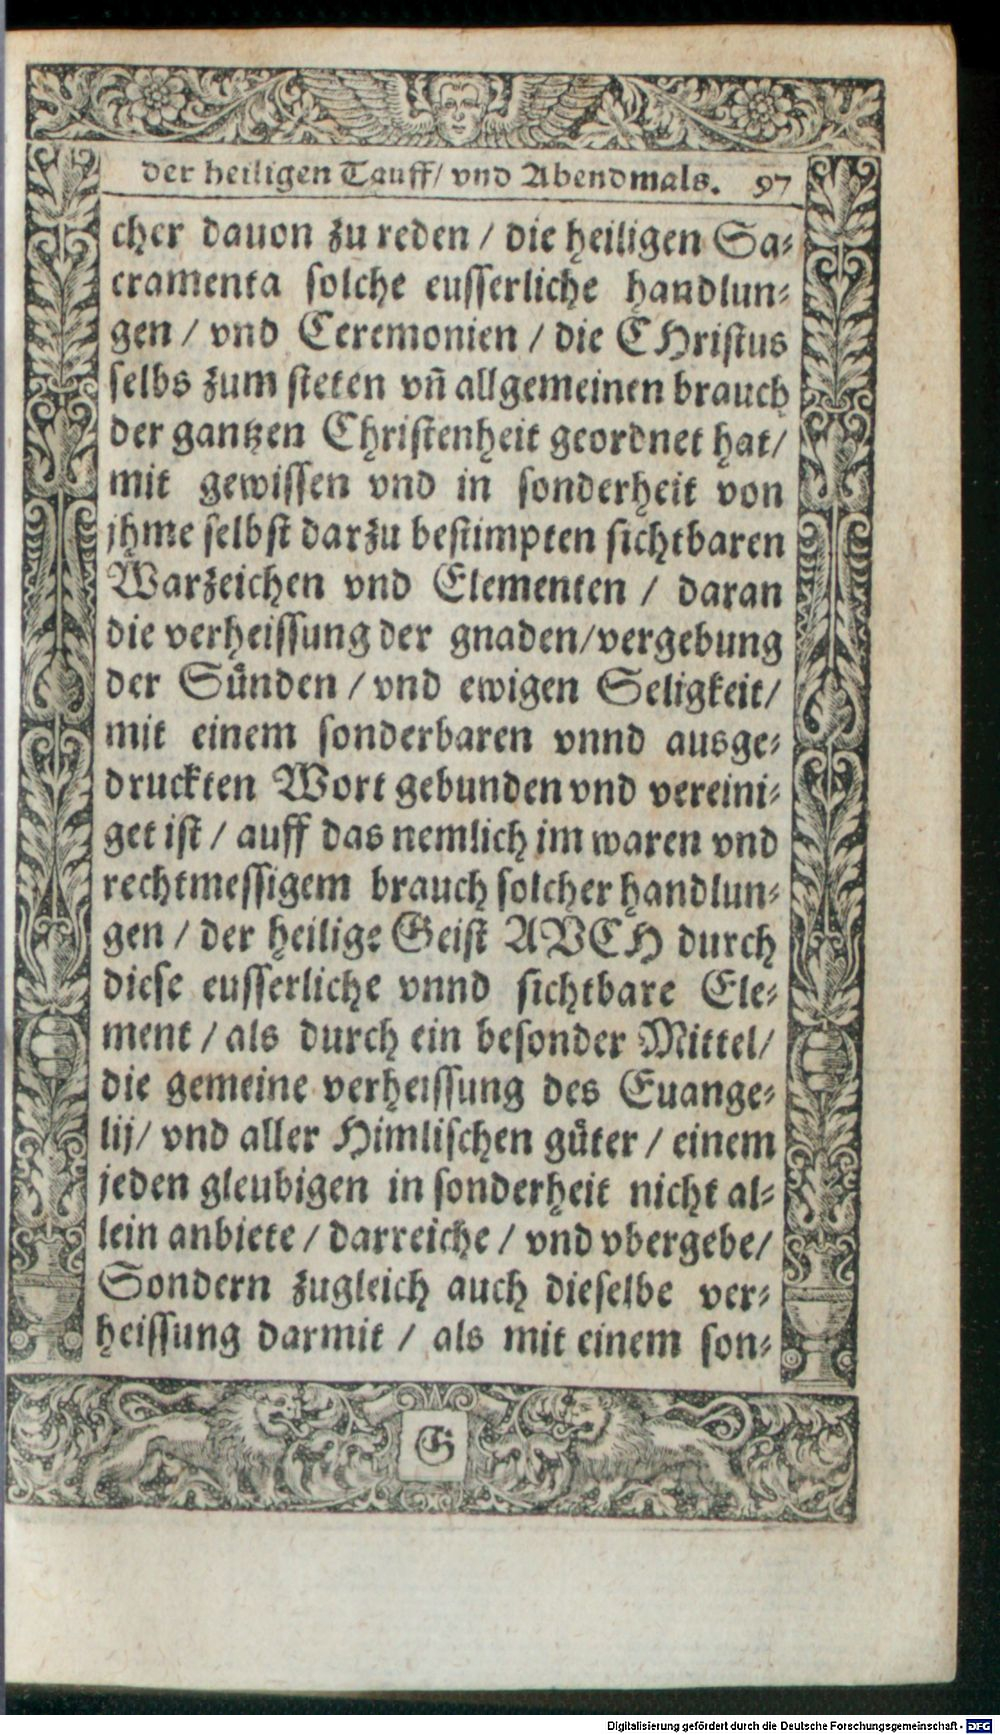 der heiligen Tauff/ vnd Abendmals. 97
cher dauon zu reden / die heiligen Sa⸗
cramenta solche eusserliche handlun⸗
gen / vnd Ceremonien / die CHristus
selbs zum steten vñ allgemeinen brauch
der gantzen Christenheit geordnet hat/
mit gewissen vnd in sonderheit von
jhme selbst darzu bestimpten sichtbaren
Warzeichen vnd Elementen / daran
die verheissung der gnaden/vergebung
der Sünden / vnd ewigen Seligkeit/
mit einem sonderbaren vnnd ausge⸗
druckten Wort gebunden vnd vereini⸗
get ist / auff das nemlich im waren vnd
rechtmessigem brauch solcher handlun⸗
gen / der heilige Geist AVCH durch
diese eusserliche vnnd sichtbare Ele⸗
ment / als durch ein besonder Mittel/
die gemeine verheissung des Euange⸗
lij/ vnd aller Himlischen güter / einem
jeden gleubigen in sonderheit nicht al⸗
lein anbiete / darreiche / vnd vbergebe/
Sondern zugleich auch dieselbe ver⸗
heissung darmit / als mit einem son⸗
G
Digitalisierung gefördert durch die Deutsche Forschungsgemeinschaft - DFG